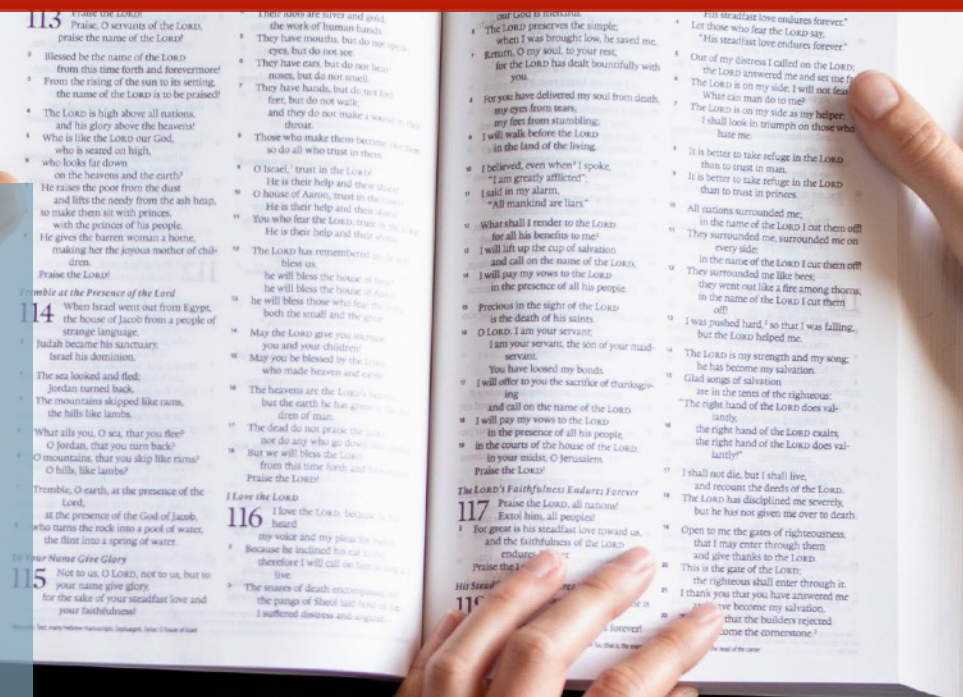 113 Praise the LORD!
Praise, O servants of the LORD,
praise the name of the LORD!
Blessed be the name of the LORD
from this time forth and forevermore!
3 From the rising of the sun to its setting,
the name of the LORD is to be praised!
4 The LORD is high above all nations,
and his glory above the heavens!
5 Who is like the LORD our God,
who is seated on high,
6 who looks far down
on the heavens and the earth?
He raises the poor from the dust
and lifts the needy from the ash heap,
to make them sit with princes,
with the princes of his people.
He gives the barren woman a home,
making her the joyous mother of chil-
dren.
Praise the LORD!
Tremble at the Presence of the Lord
114 When Israel went out from Egypt,
the house of Jacob from a people of
strange language,
Judah became his sanctuary,
Israel his dominion.
The sea looked and fled;
Jordan turned back.
The mountains skipped like rams,
the hills like lambs.
What ails you, O sea, that you flee?
O Jordan, that you turn back?
O mountains, that you skip like rams?
O hills, like lambs?
Tremble, O earth, at the presence of the
Lord,
at the presence of the God of Jacob,
who turns the rock into a pool of water,
the flint into a spring of water.
To Your Name Give Glory
115 Not to us, O LORD, not to us, but to
your name give glory,
for the sake of your steadfast love and
your faithfulness!
Their idols are silver and gold,
the work of human hands.
They have mouths, but do not speak;
eyes, but do not see.
They have ears, but do not hear;
noses, but do not smell.
They have hands, but do not feel;
feet, but do not walk;
and they do not make a sound in their
throat.
8 Those who make them become like them;
so do all who trust in them.
9 O Israel, trust in the LORD!
He is their help and their shield.
10 O house of Aaron, trust in the LORD!
He is their help and their shield.
11 You who fear the LORD, trust in the LORD!
He is their help and their shield.
12 The LORD has remembered us; he will
bless us;
he will bless the house of Israel;
he will bless the house of Aaron;
13 he will bless those who fear the LORD,
both the small and the great.
14 May the LORD give you increase,
you and your children!
15 May you be blessed by the LORD,
who made heaven and earth!
16 The heavens are the LORD's heavens,
but the earth he has given to the chil-
dren of man.
17 The dead do not praise the LORD,
nor do any who go down
18 But we will bless the LORD
from this time forth and forevermore.
Praise the LORD!
I Love the LORD
116 I love the LORD, because he has
heard
my voice and my pleas for mercy.
2 Because he inclined his ear to me,
therefore I will call on him as long as I
live.
3 The snares of death encompassed me;
the pangs of Sheol laid hold on me;
I suffered distress and anguish.
our God is merciful.
6 The LORD preserves the simple;
when I was brought low, he saved me.
7 Return, O my soul, to your rest;
for the LORD has dealt bountifully with
you.
8 For you have delivered my soul from death,
my eyes from tears,
my feet from stumbling;
9 I will walk before the LORD
in the land of the living.
10 I believed, even when I spoke,
"I am greatly afflicted";
11 I said in my alarm,
"All mankind are liars."
12 What shall I render to the LORD
for all his benefits to me?
13 I will lift up the cup of salvation
and call on the name of the LORD,
14 I will pay my vows to the LORD
in the presence of all his people.
15 Precious in the sight of the LORD
is the death of his saints.
16 O LORD, I am your servant;
I am your servant, the son of your maid-
servant.
You have loosed my bonds.
17 I will offer to you the sacrifice of thanksgiv-
ing
and call on the name of the LORD.
18 I will pay my vows to the LORD
in the presence of all his people,
19 in the courts of the house of the LORD,
in your midst, O Jerusalem.
Praise the LORD!
The LORD's Faithfulness Endures Forever
117 Praise the LORD, all nations!
Extol him, all peoples!
2 For great is his steadfast love toward us,
and the faithfulness of the LORD
endures
Praise the
His
forever!
His steadfast love endures forever."
4 Let those who fear the LORD say,
"His steadfast love endures forever."
5 Out of my distress I called on the LORD;
the LORD answered me and set me
6 The LORD is on my side; I will not fear.
What can man do to me?
7 The LORD is on my side as my helper;
I shall look in triumph on those who
hate me.
8 It is better to take refuge in the LORD
than to trust in man.
9 It is better to take refuge in the LORD
than to trust in princes.
10 All nations surrounded me;
in the name of the LORD I cut them off!
11 They surrounded me, surrounded me on
every side;
in the name of the LORD I cut them off!
12 They surrounded me like bees;
they went out like a fire among thorns;
in the name of the LORD I cut them
off!
13 I was pushed hard, so that I was falling,
but the LORD helped me.
14 The LORD is my strength and my song;
he has become my salvation.
15 Glad songs of salvation
are in the tents of the righteous:
"The right hand of the LORD does val-
iantly,
16 the right hand of the LORD exalts,
the right hand of the LORD does val-
iantly!"
17 I shall not die, but I shall live,
and recount the deeds of the LORD.
18 The LORD has disciplined me severely,
but he has not given me over to death.
19 Open to me the gates of righteousness,
that I may enter through them
and give thanks to the LORD.
20 This is the gate of the LORD;
the righteous shall enter through it.
21 I thank you that you have answered me
have become my salvation.
22 that the builders rejected
become the cornerstone.